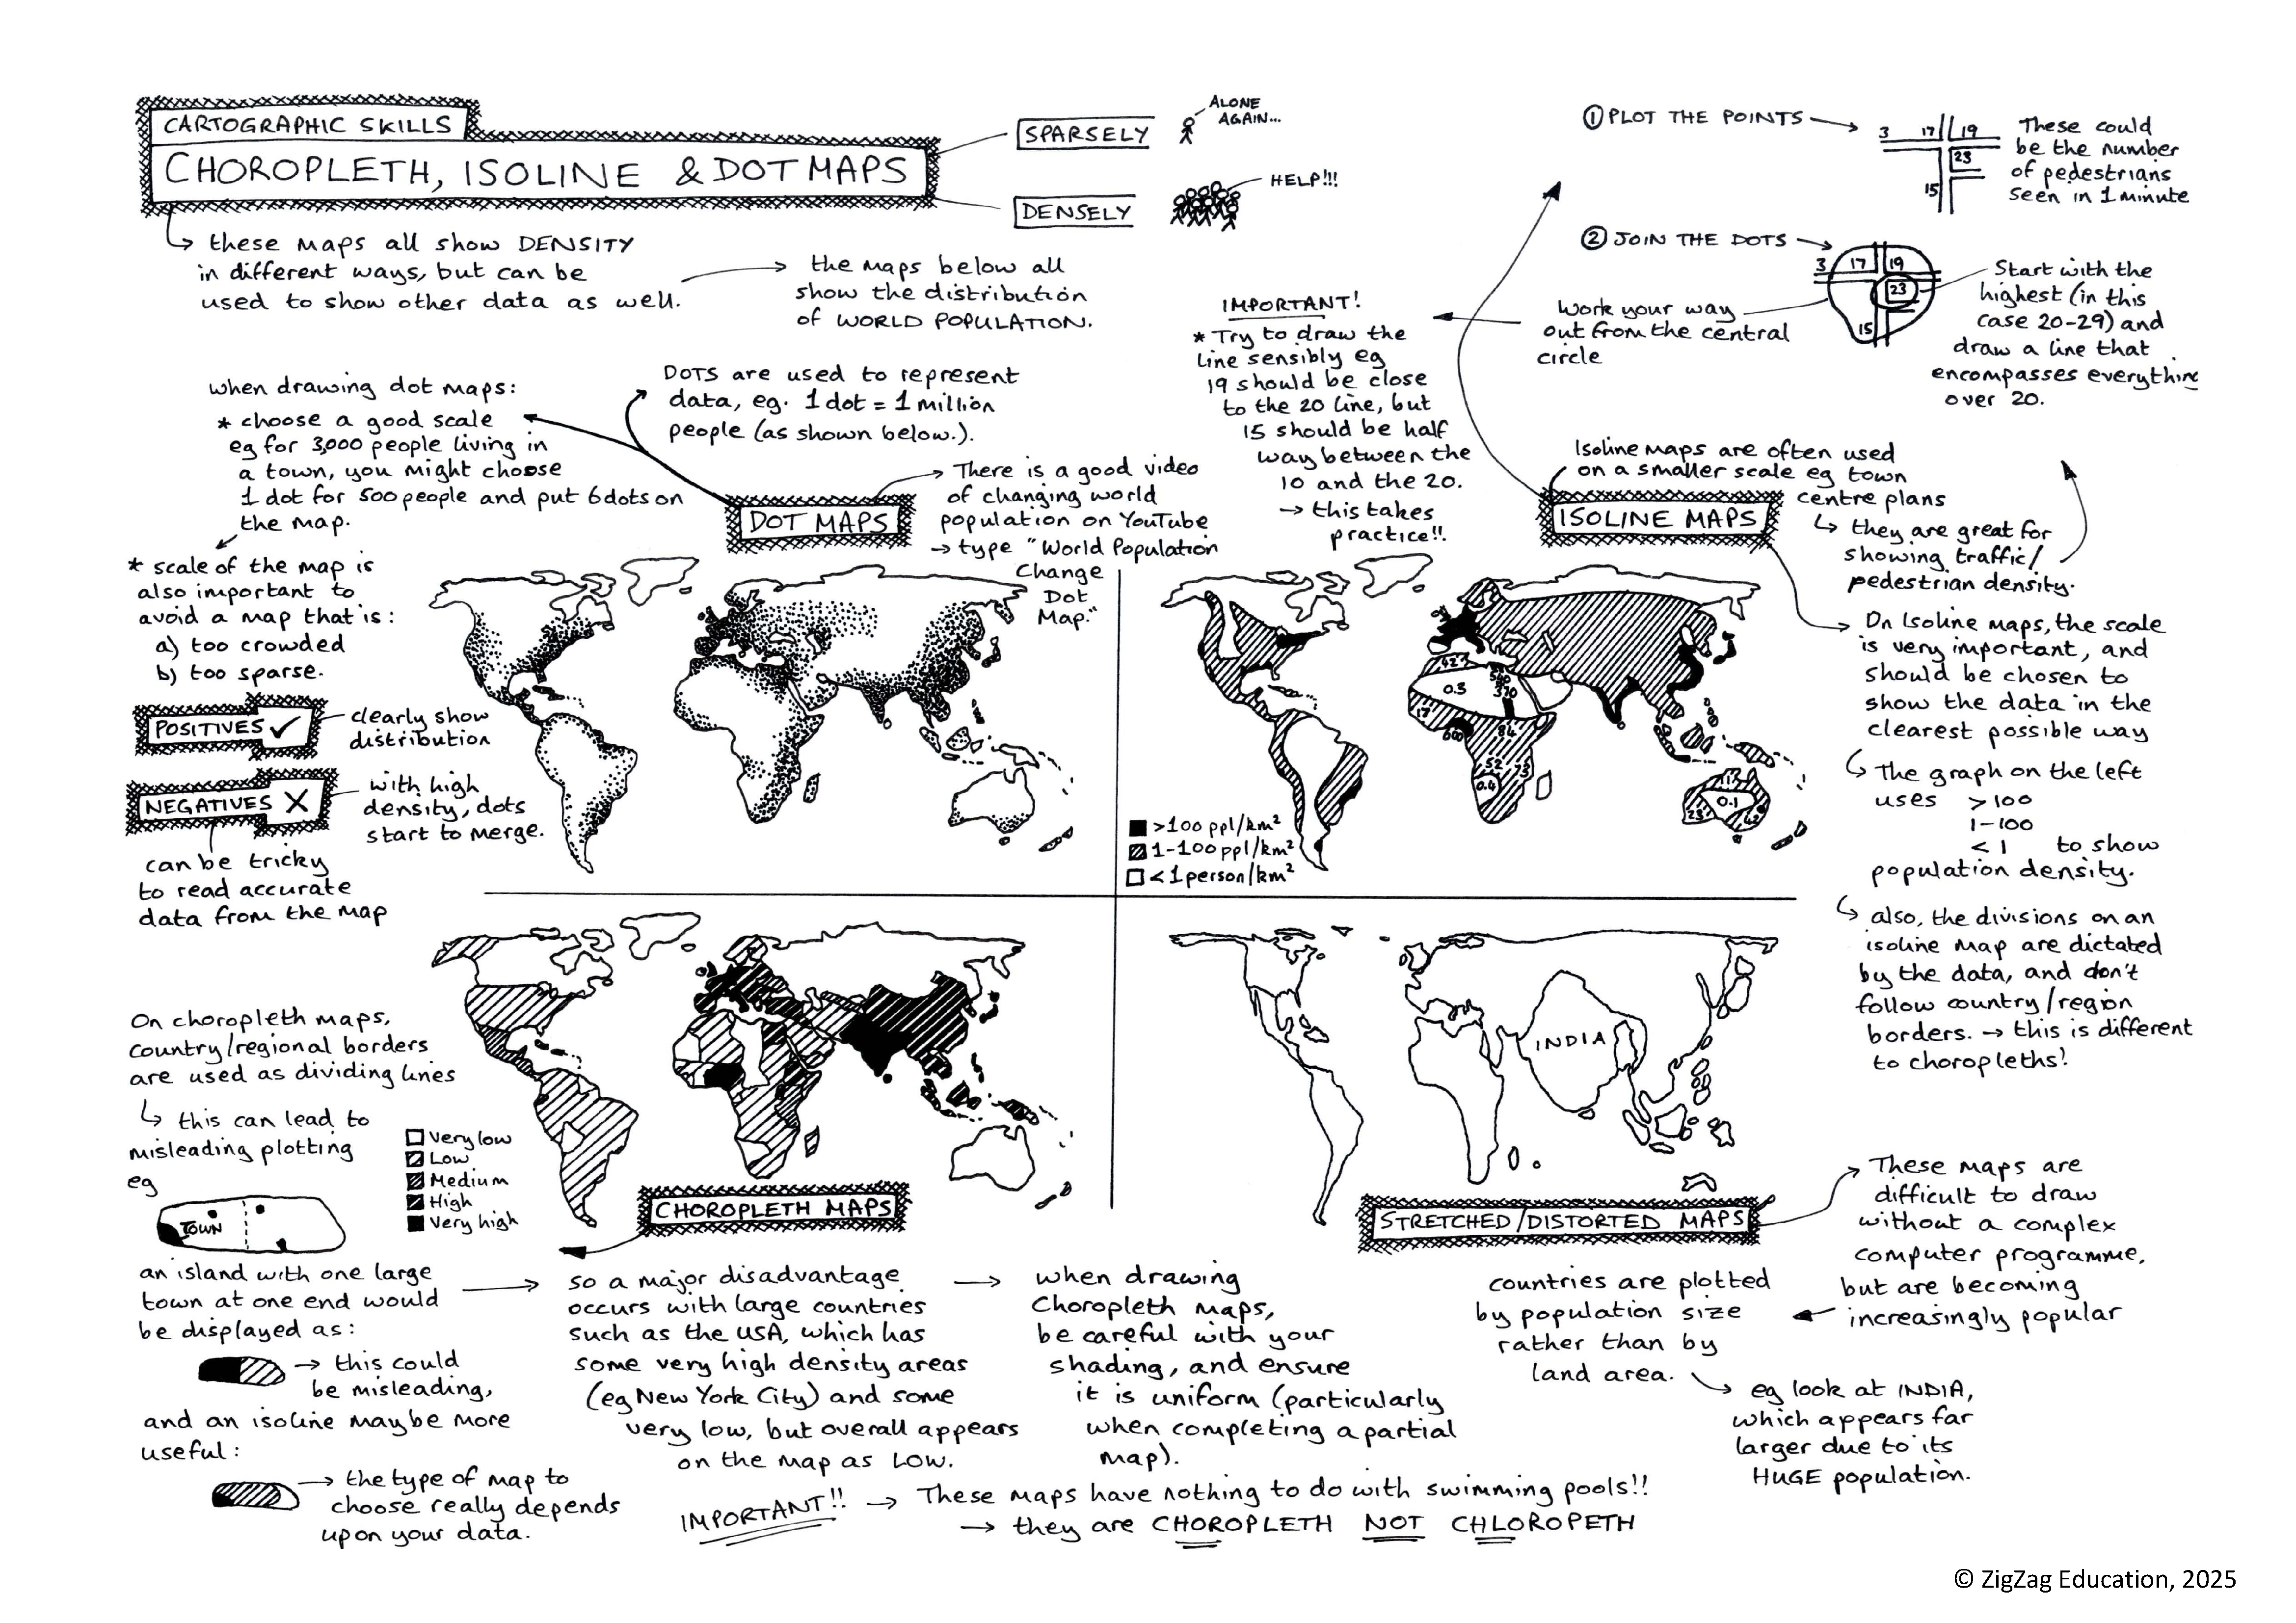 CARTOGRAPHIC SKILLS
CHOROPLETH, ISOLINE & DOT MAPS
SPARSELY
ALONE
AGAIN...
DENSELY
HELP!!!
these maps all show DENSITY
in different ways, but can be
used to show other data as well.
the maps below all
show the distribution
of WORLD POPULATION.
① PLOT THE POINTS
3 17 19
23
15
These could
be the number
of pedestrians
seen in 1 minute
② JOIN THE DOTS
3 17 19
23
15
Start with the
highest (in this
case 20-29) and
draw a line that
encompasses everything
over 20.
Work your way
out from the central
circle
IMPORTANT!
* Try to draw the
line sensibly eg
19 should be close
to the 20 line, but
15 should be half
way between the
10 and the 20.
→ this takes
practice!!
when drawing dot maps:
* choose a good scale
eg for 3,000 people living in
a town, you might choose
1 dot for 500 people and put 6 dots on
the map.
* scale of the map is
also important to
avoid a map that is:
a) too crowded
b) too sparse.
DOTS are used to represent
data, eg. 1 dot = 1 million
people (as shown below.).
DOT MAPS
There is a good video
of changing world
population on YouTube
→ type "World Population
Change
Dot
Map."
POSITIVES ✓
clearly show
distribution
NEGATIVES X
with high
density, dots
start to merge.
can be tricky
to read accurate
data from the map
Isoline maps are often used
on a smaller scale eg town
centre plans
ISOLINE MAPS
they are great for
showing traffic/
pedestrian density.
On Isoline maps, the scale
is very important, and
should be chosen to
show the data in the
clearest possible way
The graph on the left
uses >100
1-100
<1 to show
population density.
also, the divisions on an
isoline map are dictated
by the data, and don't
follow country/region
borders. → this is different
to choropleths!
42
0.3
17
600
84
52
0.4
0.1
>100 ppl/km²
1-100 ppl/km²
<1 person/km²
On choropleth maps,
country/regional borders
are used as dividing lines
this can lead to
misleading plotting
eg
TOWN
an island with one large
town at one end would
be displayed as:
→ this could
be misleading,
and an isoline maybe more
useful:
→ the type of map to
choose really depends
upon your data.
Very low
Low
Medium
High
Very high
CHOROPLETH MAPS
so a major disadvantage
occurs with large countries
such as the USA, which has
some very high density areas
(eg New York City) and some
very low, but overall appears
on the map as LOW.
when drawing
Choropleth maps,
be careful with your
shading, and ensure
it is uniform (particularly
when completing a partial
map).
IMPORTANT!! → These maps have nothing to do with swimming pools!!
→ they are CHOROPLETH NOT CHLOROPETH
INDIA
STRETCHED/DISTORTED MAPS
These maps are
difficult to draw
without a complex
computer programme,
but are becoming
increasingly popular
countries are plotted
by population size
rather than by
land area.
eg look at INDIA,
which appears far
larger due to its
HUGE population.
© ZigZag Education, 2025